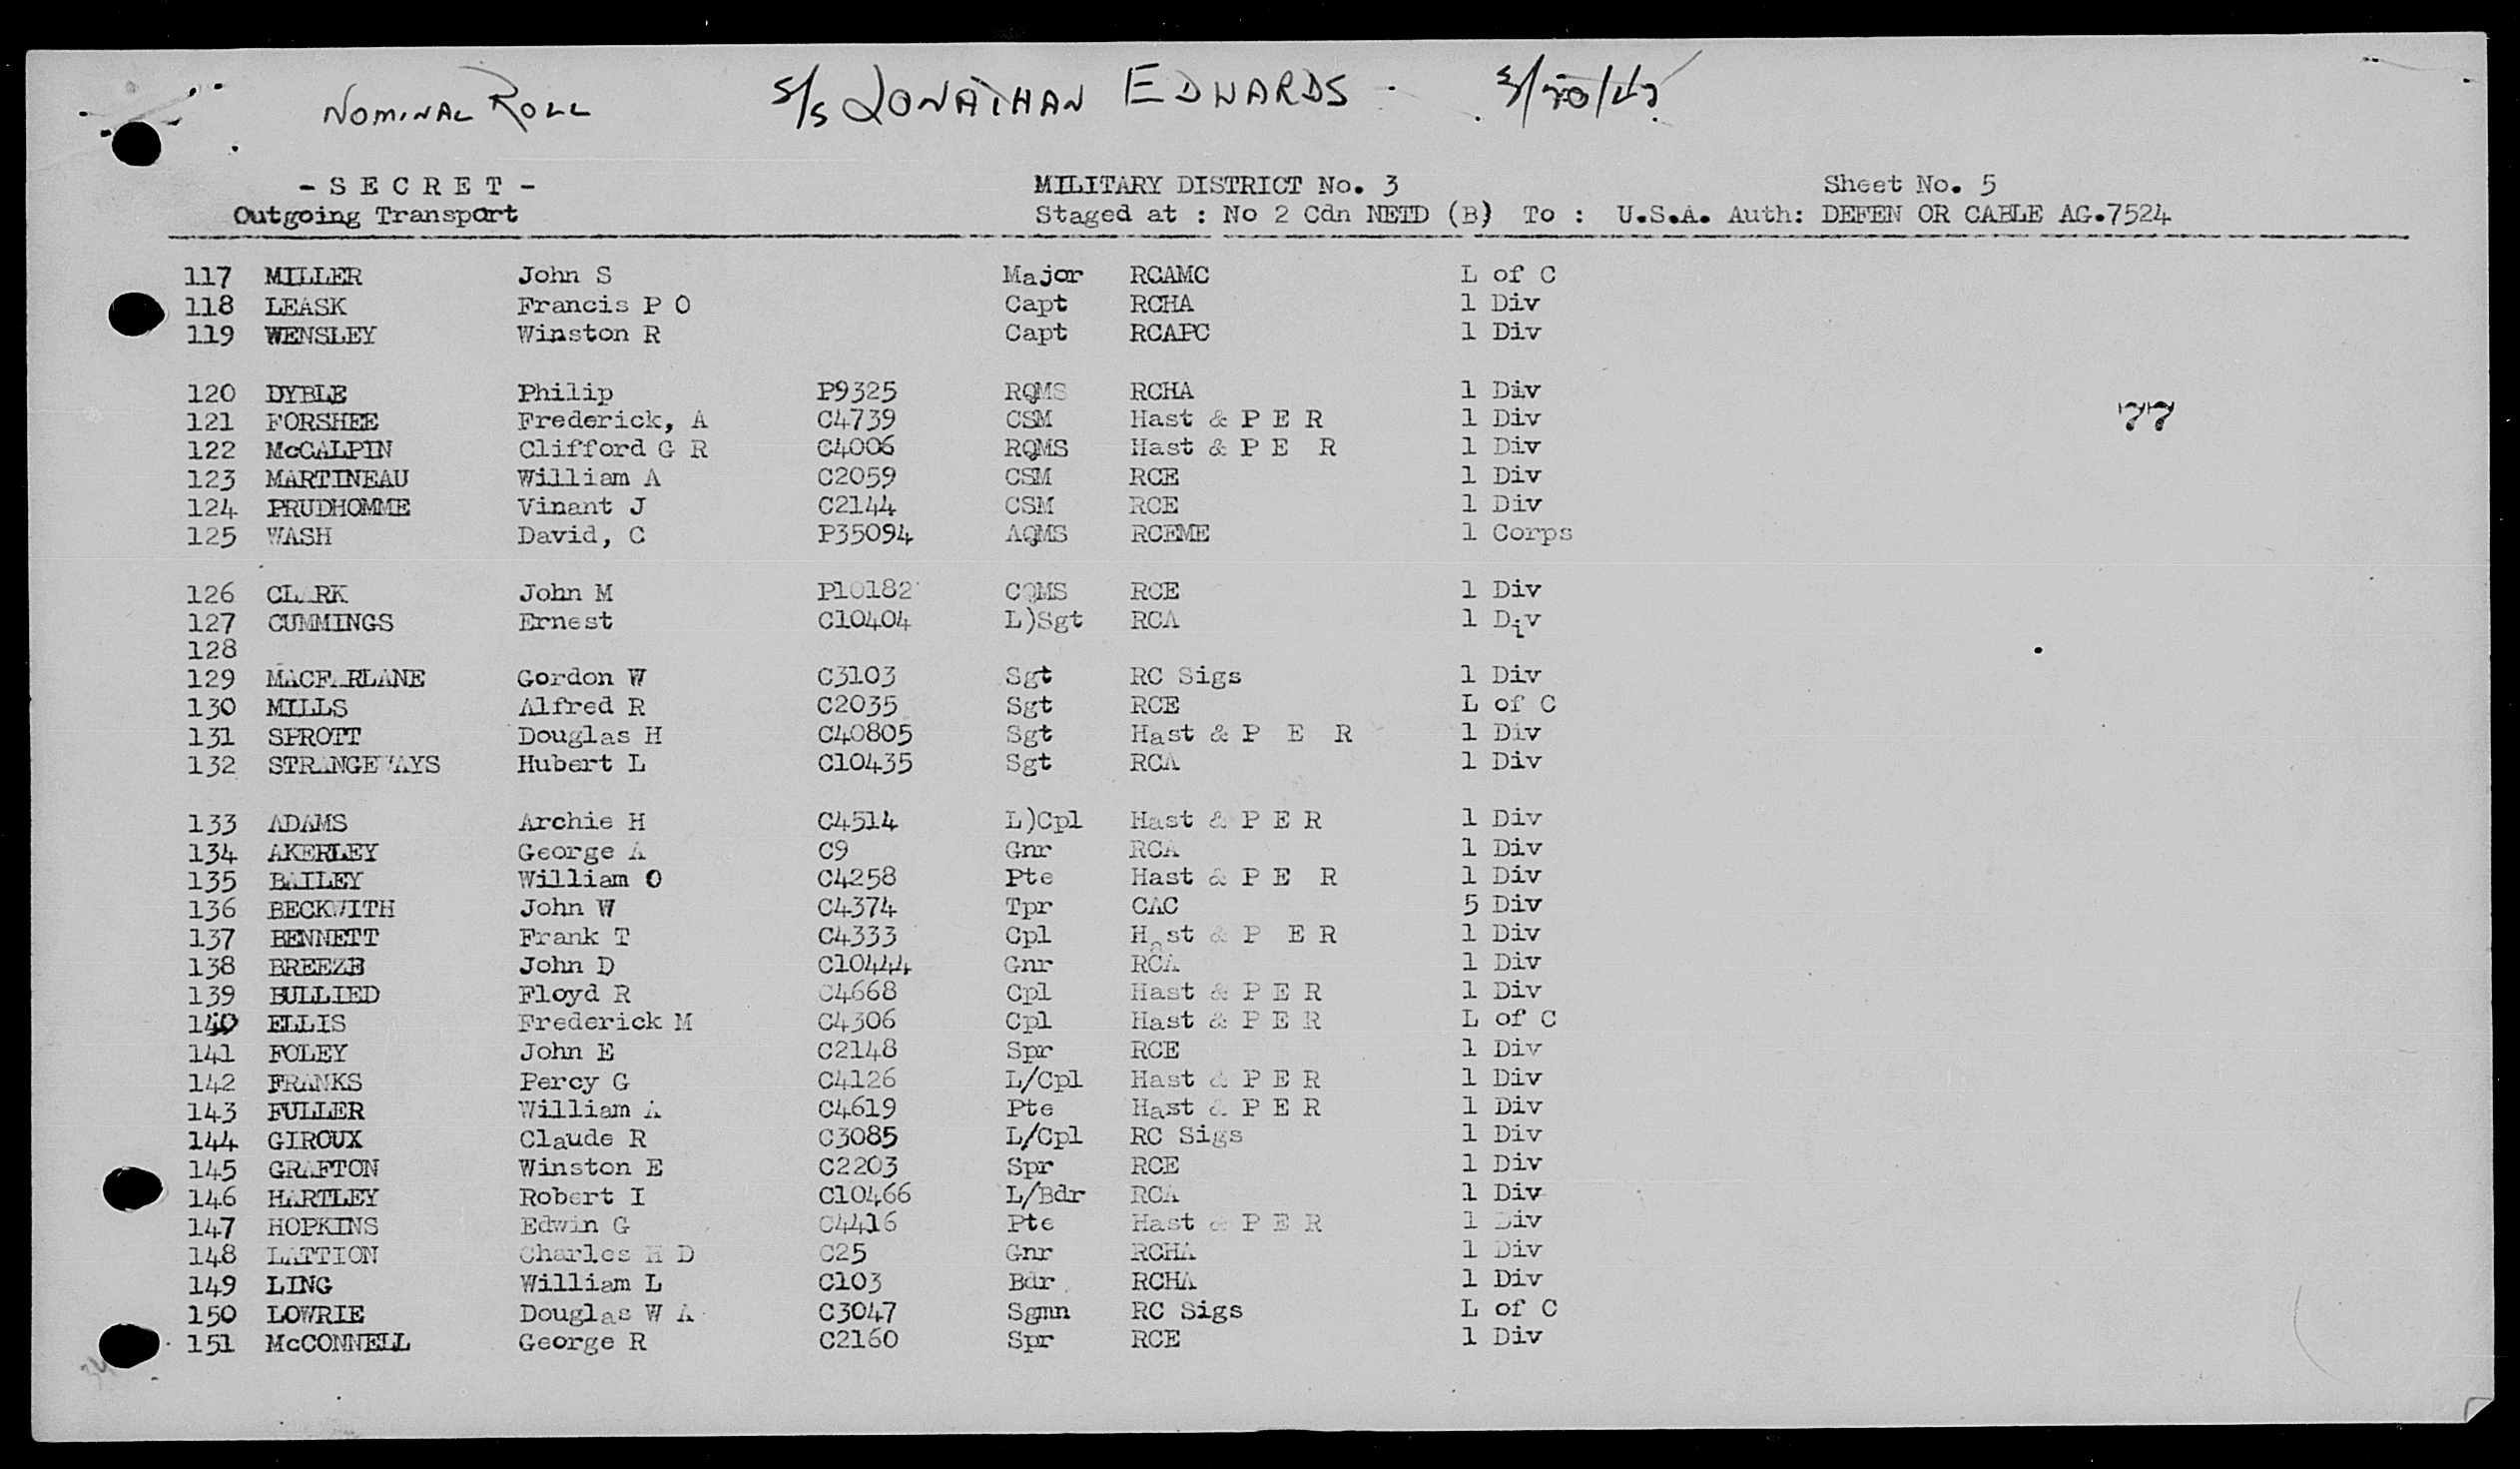 NOMINAL ROLL S/S JONATHAN EDWARDS
- S E C R E T - MILITARY DISTRICT No. 3 Sheet No. 5
Outgoing Transport Staged at : No 2 Cdn NETD (B) To : U.S.A. Auth: DEFEN OR CABLE AG.7524
117 MILLER John S Major RCAMC L of C
118 LEASK Francis P O Capt RCHA 1 Div
119 WENSLEY Winston R Capt RCAPC 1 Div
120 DYBLE Philip P9325 RQMS RCHA 1 Div
121 FORSHEE Frederick, A C4739 CSM Hast & P E R 1 Div
77
122 McCALPIN Clifford G R C4006 RQMS Hast & P E R 1 Div
123 MARTINEAU William A C2059 CSM RCE 1 Div
124 PRUDHOMME Vinant J C2144 CSM RCE 1 Div
125 WASH David, C P35094 AQMS RCEME 1 Corps
126 CLARK John M P10182 CQMS RCE 1 Div
127 CUMMINGS Ernest C10404 L)Sgt RCA 1 Div
128
129 MACFARLANE Gordon W C3103 Sgt RC Sigs 1 Div
130 MILLS Alfred R C2035 Sgt RCE L of C
131 SPROTT Douglas H C40805 Sgt Hast & P E R 1 Div
132 STRANGEWAYS Hubert L C10435 Sgt RCA 1 Div
133 ADAMS Archie H C4514 L)Cpl Hast & P E R 1 Div
134 AKERLEY George A C9 Gnr RCA 1 Div
135 BAILEY William O C4258 Pte Hast & P E R 1 Div
136 BECKWITH John W C4374 Tpr CAC 5 Div
137 BENNETT Frank T C4333 Cpl Hast & P E R 1 Div
138 BREEZE John D C10444 Gnr RCA 1 Div
139 BULLIED Floyd R C4668 Cpl Hast & P E R 1 Div
140 ELLIS Frederick M C4306 Cpl Hast & P E R L of C
141 FOLEY John E C2148 Spr RCE 1 Div
142 FRANKS Percy G C4126 L/Cpl Hast & P E R 1 Div
143 FULLER William A C4619 Pte Hast & P E R 1 Div
144 GIROUX Claude R C3085 L/Cpl RC Sigs 1 Div
145 GRAFTON Winston E C2203 Spr RCE 1 Div
146 HARTLEY Robert I C10466 L/Bdr RCA 1 Div
147 HOPKINS Edwin G C4416 Pte Hast & P E R 1 Div
148 LATTION Charles H D C25 Gnr RCHA 1 Div
149 LING William L C103 Bdr RCHA 1 Div
150 LOWRIE Douglas W A C3047 Sgmn RC Sigs L of C
151 McCONNELL George R C2160 Spr RCE 1 Div